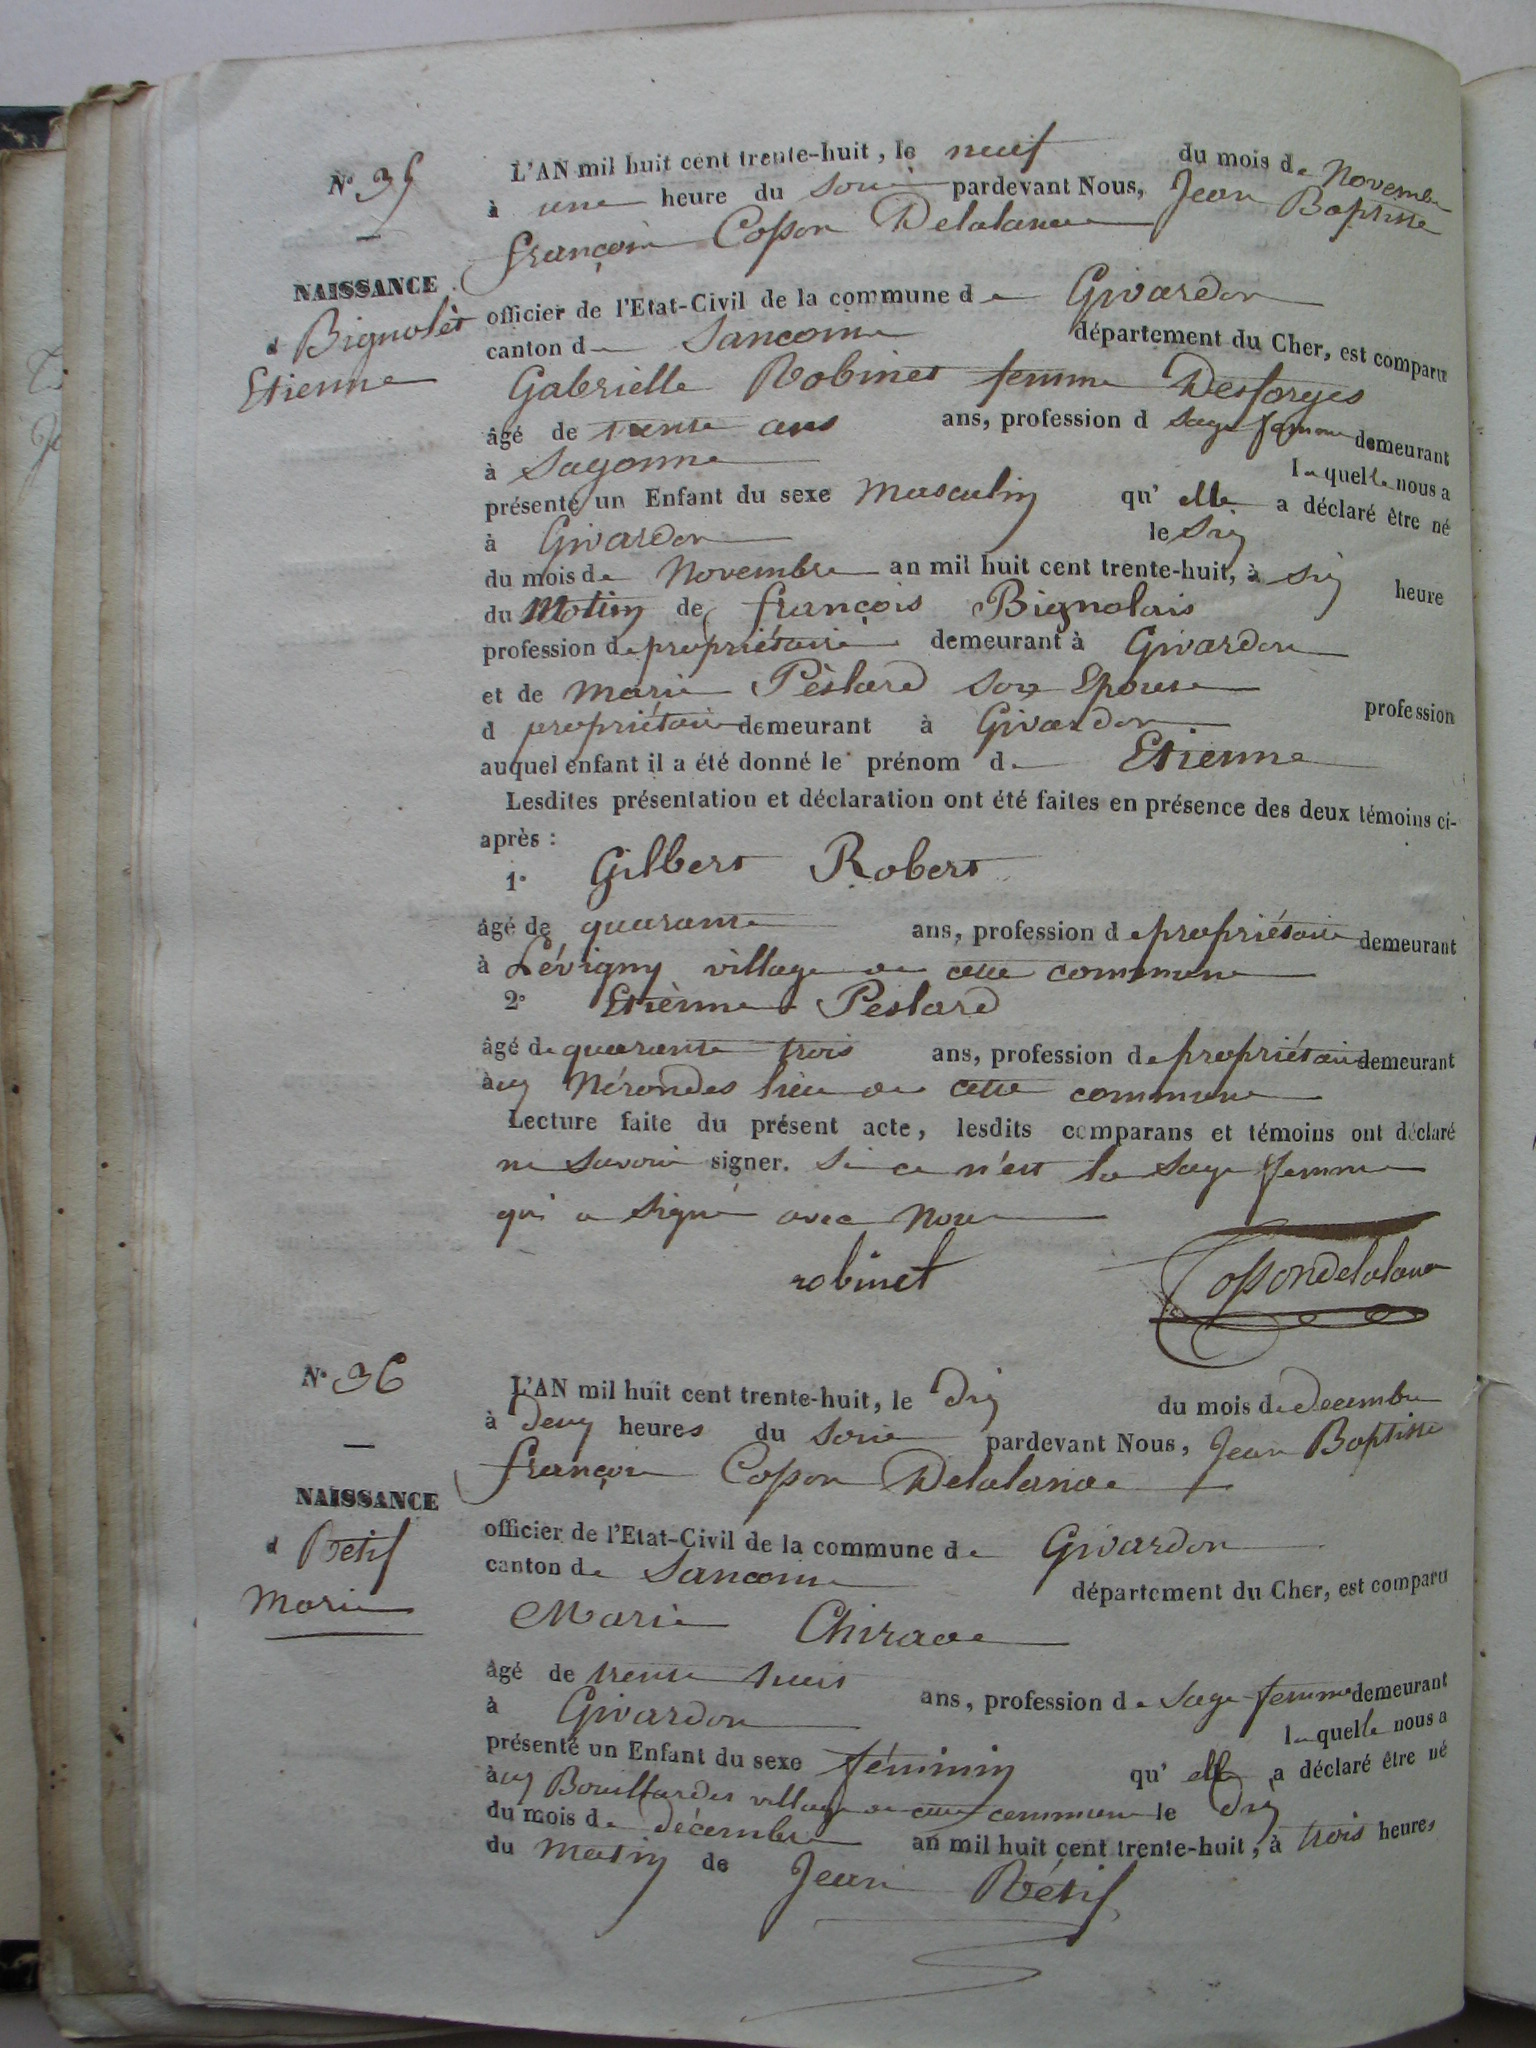 N° 35
NAISSANCE
d Bignolèt
Etienne
L'AN mil huit cent trente-huit, le neuf du mois de Novembre
à une heure du soir pardevant Nous, Jean Baptiste
françois Cosson Delalande
officier de l'Etat-Civil de la commune de Givardon
canton de Sancoins département du Cher, est comparu
Gabrielle Robinet femme Desforges
âgé de trente ans ans, profession d sage femme demeurant
à Sagonne laquelle nous a
présenté un Enfant du sexe Masculin qu'elle a déclaré être né
à Givardon le Six
du mois de Novembre an mil huit cent trente-huit, à Six heure
du Matin de françois Bignolais
profession de propriétaire demeurant à Givardon
et de Marie Péstard son Epouse profession
d propriétaire demeurant à Givardon
auquel enfant il a été donné le prénom de Etienne
Lesdites présentation et déclaration ont été faites en présence des deux témoins ci-
après :
1° Gilbert Robert
âgé de quarante ans, profession de propriétaire demeurant
à Lévigny village de cette commune
2° Etiènne Pestard
âgé de quarante trois ans, profession de propriétaire demeurant
àux Nérondes lieu de cette commune
Lecture faite du présent acte, lesdits comparans et témoins ont déclaré
ne savoir signer. Si ce n'est la sage femme
qui a signé avec Nous
robinet Cossondelalande
N° 36
NAISSANCE
d Rétif
Marie
L'AN mil huit cent trente-huit, le Dix du mois de decembre
à deux heures du soir pardevant Nous, Jean Baptiste
françois Cosson Delalande
officier de l'Etat-Civil de la commune de Givardon
canton de Sancoins département du Cher, est comparu
Marie Chirade
âgé de trente huit ans, profession de Sage-femme demeurant
à Givardon laquelle nous a
présenté un Enfant du sexe féminin qu'elle a déclaré être né
àux Bouillardes village de cette commune le Dix
du mois de décembre an mil huit cent trente-huit, à trois heures
du Matin de Jean Rétif